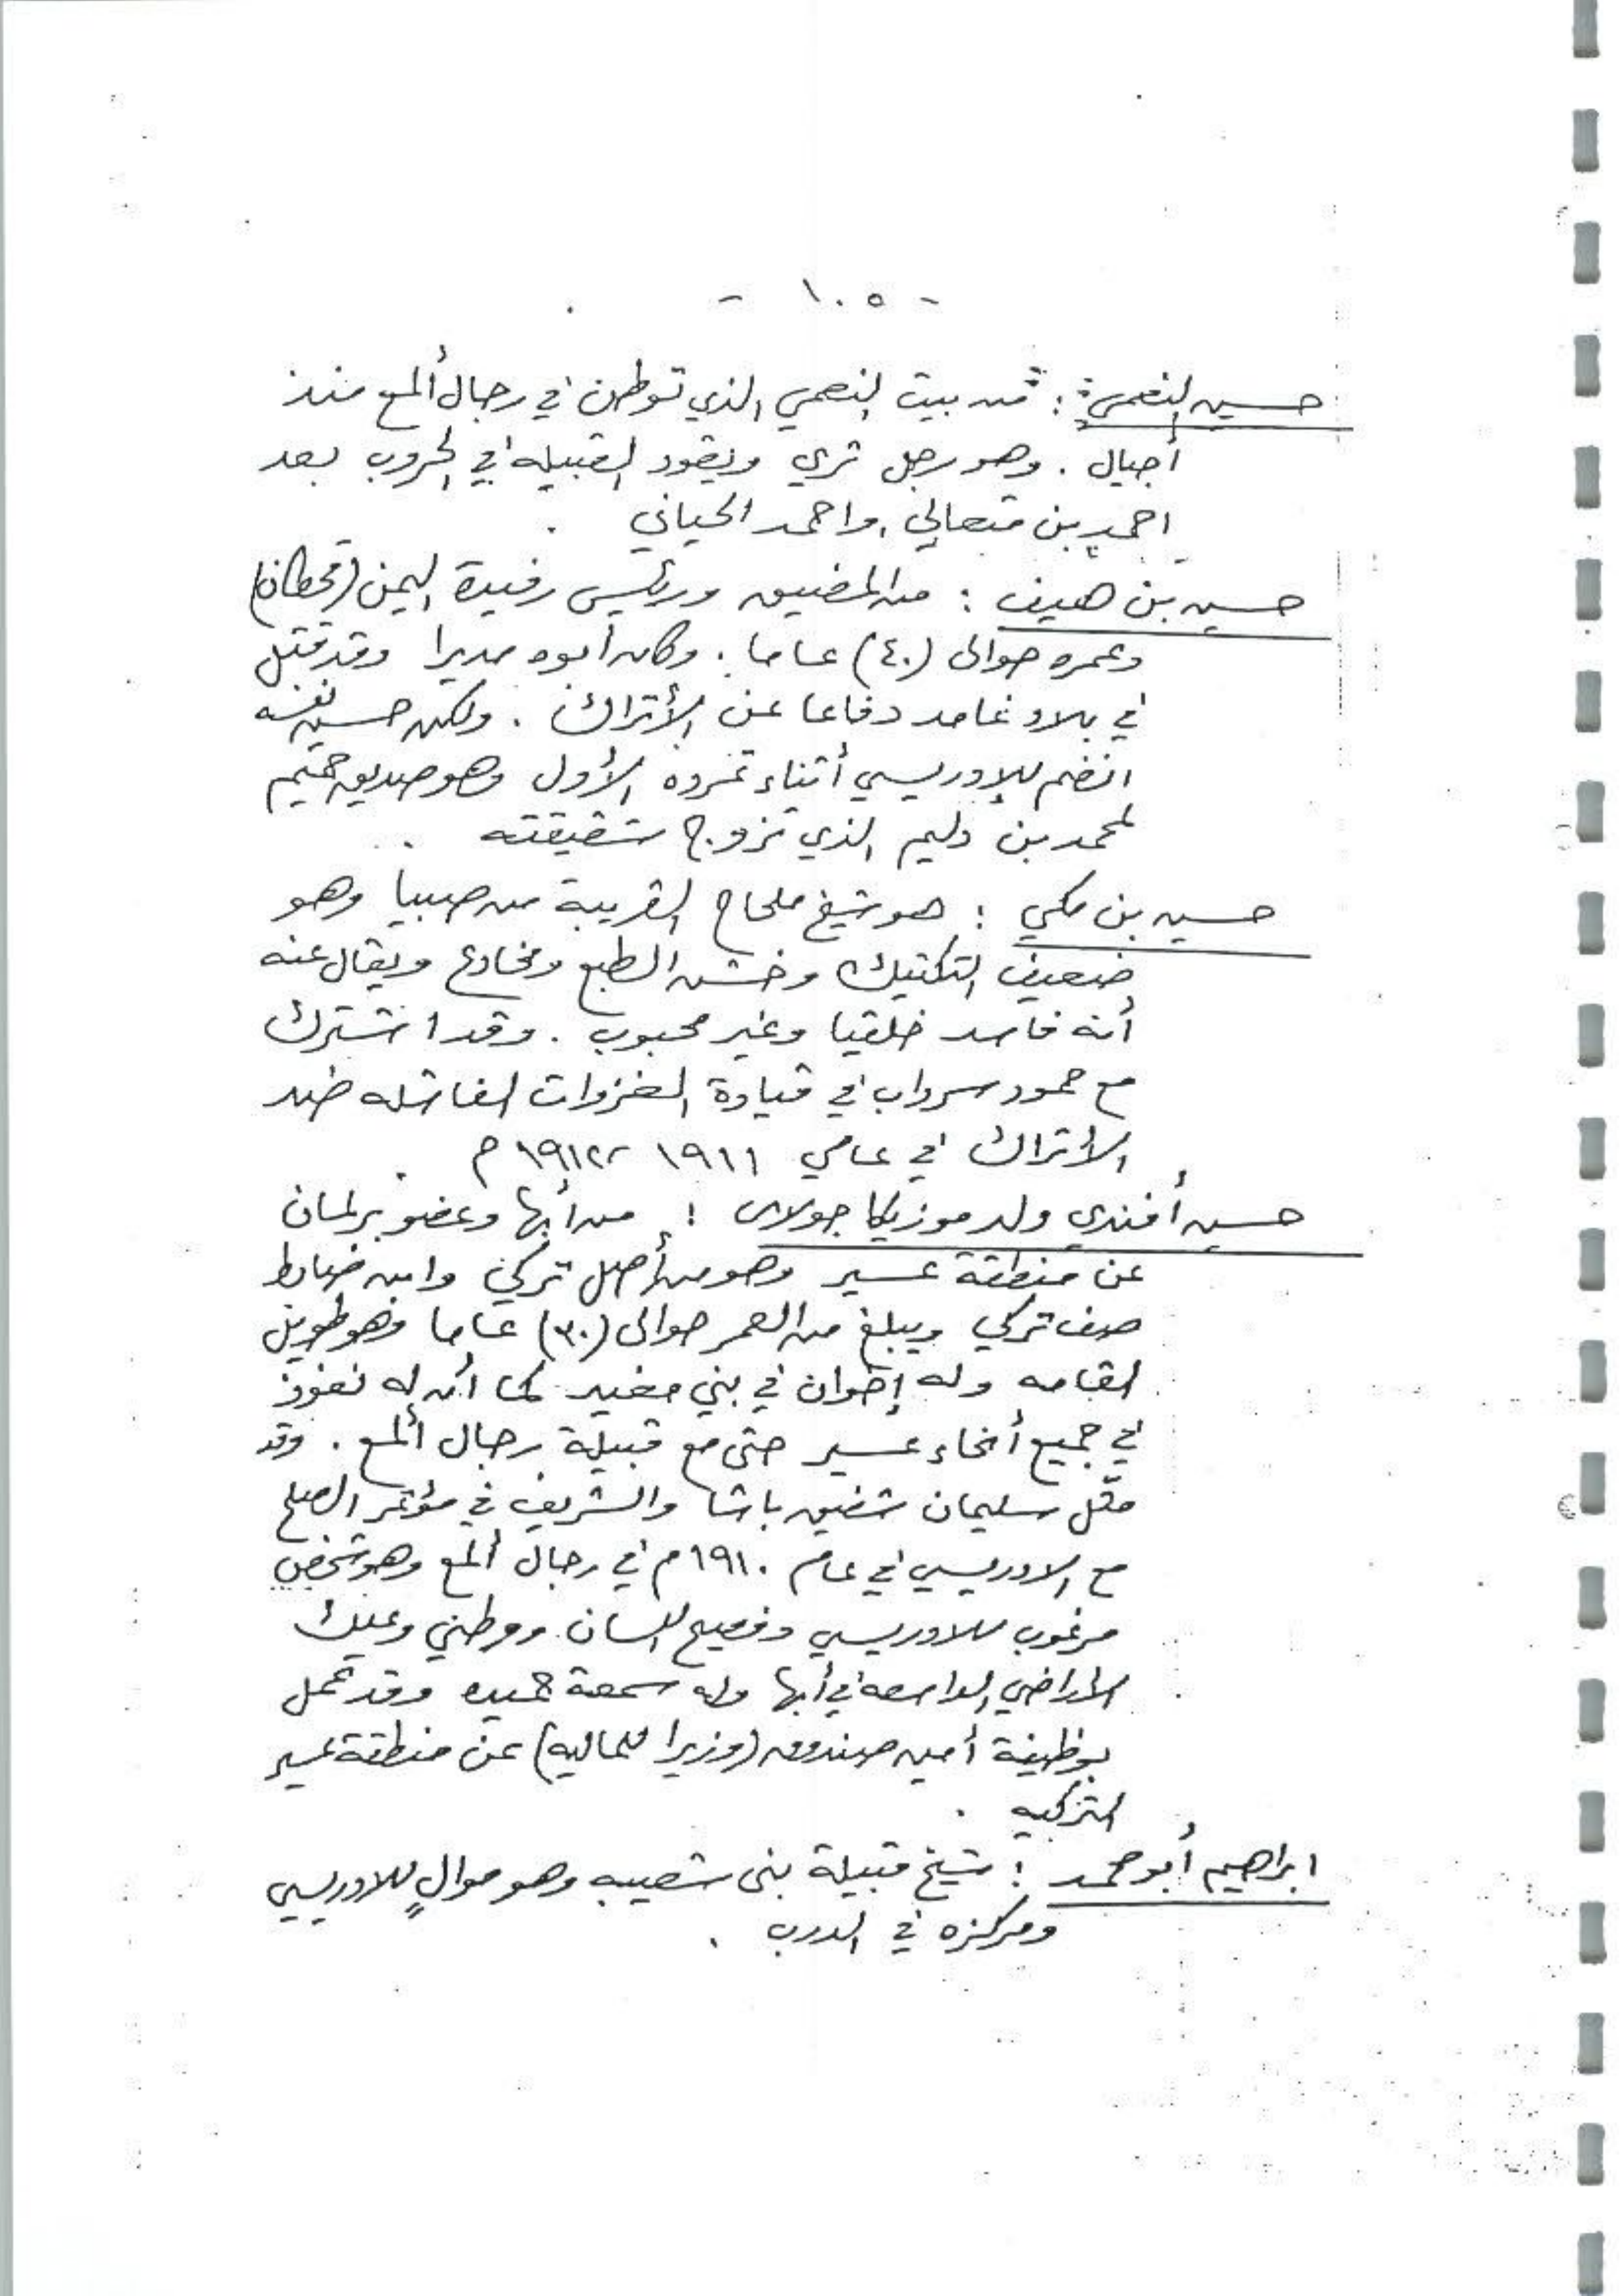 - ١٠٥ -
حسين النعمي : من بيت النعمي الذي توطن في رجال ألمع منذ
أجيال . وهو رجل ثري ويقود القبيله في الحروب بعد
احمد بن متعالي واحمد الحياني .
حسين بن هيف : من المضيق ورئيس رفيدة اليمن (قحطان)
وعمره حوالى (٤٠) عاما . وكان أبوه مديرا وقد قتل
في بلاد غامد دفاعا عن الأتراك . ولكن حسين نفسه
انضم للإدريسي أثناء تمرده الأول وهو صديق حميم
لمحمد بن دليم الذي تزوج شقيقته .
حسين بن مكي : هو شيخ ملحاح القريبة من صبيا وهو
ضعيف التكتيك وخشن الطبع ومخادع ويقال عنه
أنه فاسد خلقيا وغير محبوب . وقد اشترك
مع حمود سرداب في قيادة الغزوات الفاشله ضد
الأتراك في عامي ١٩١١ - ١٩١٢ م .
حسين أفندي ولد موزيكا جولاس : من أبها وعضو برلمان
عن منطقة عسير وهو من أصل تركي وابن ضابط
صف تركي ويبلغ من العمر حوالى (٣٠) عاما وهو طويل
القامه وله إخوان في بني مغيد كما أن له نفوذ
في جميع أنحاء عسير حتى مع قبيلة رجال ألمع . وقد
مثّل سليمان شفيق باشا والشريف في مؤتمر الصلح
مع الادريسي في عام ١٩١٠ م في رجال ألمع وهو شخص
مرغوب للادريسي وفصيح اللسان ووطني ويملك
الأراضي الواسعه في أبها وله سمعة حميده وقد عمل
بوظيفة أمين صندوق (وزيرا للماليه) عن منطقة عسير
التركيه .
ابراهيم أبو محمد : شيخ قبيلة بنى شعيبه وهو موالٍ للادريسي
ومركزه في الدرب .